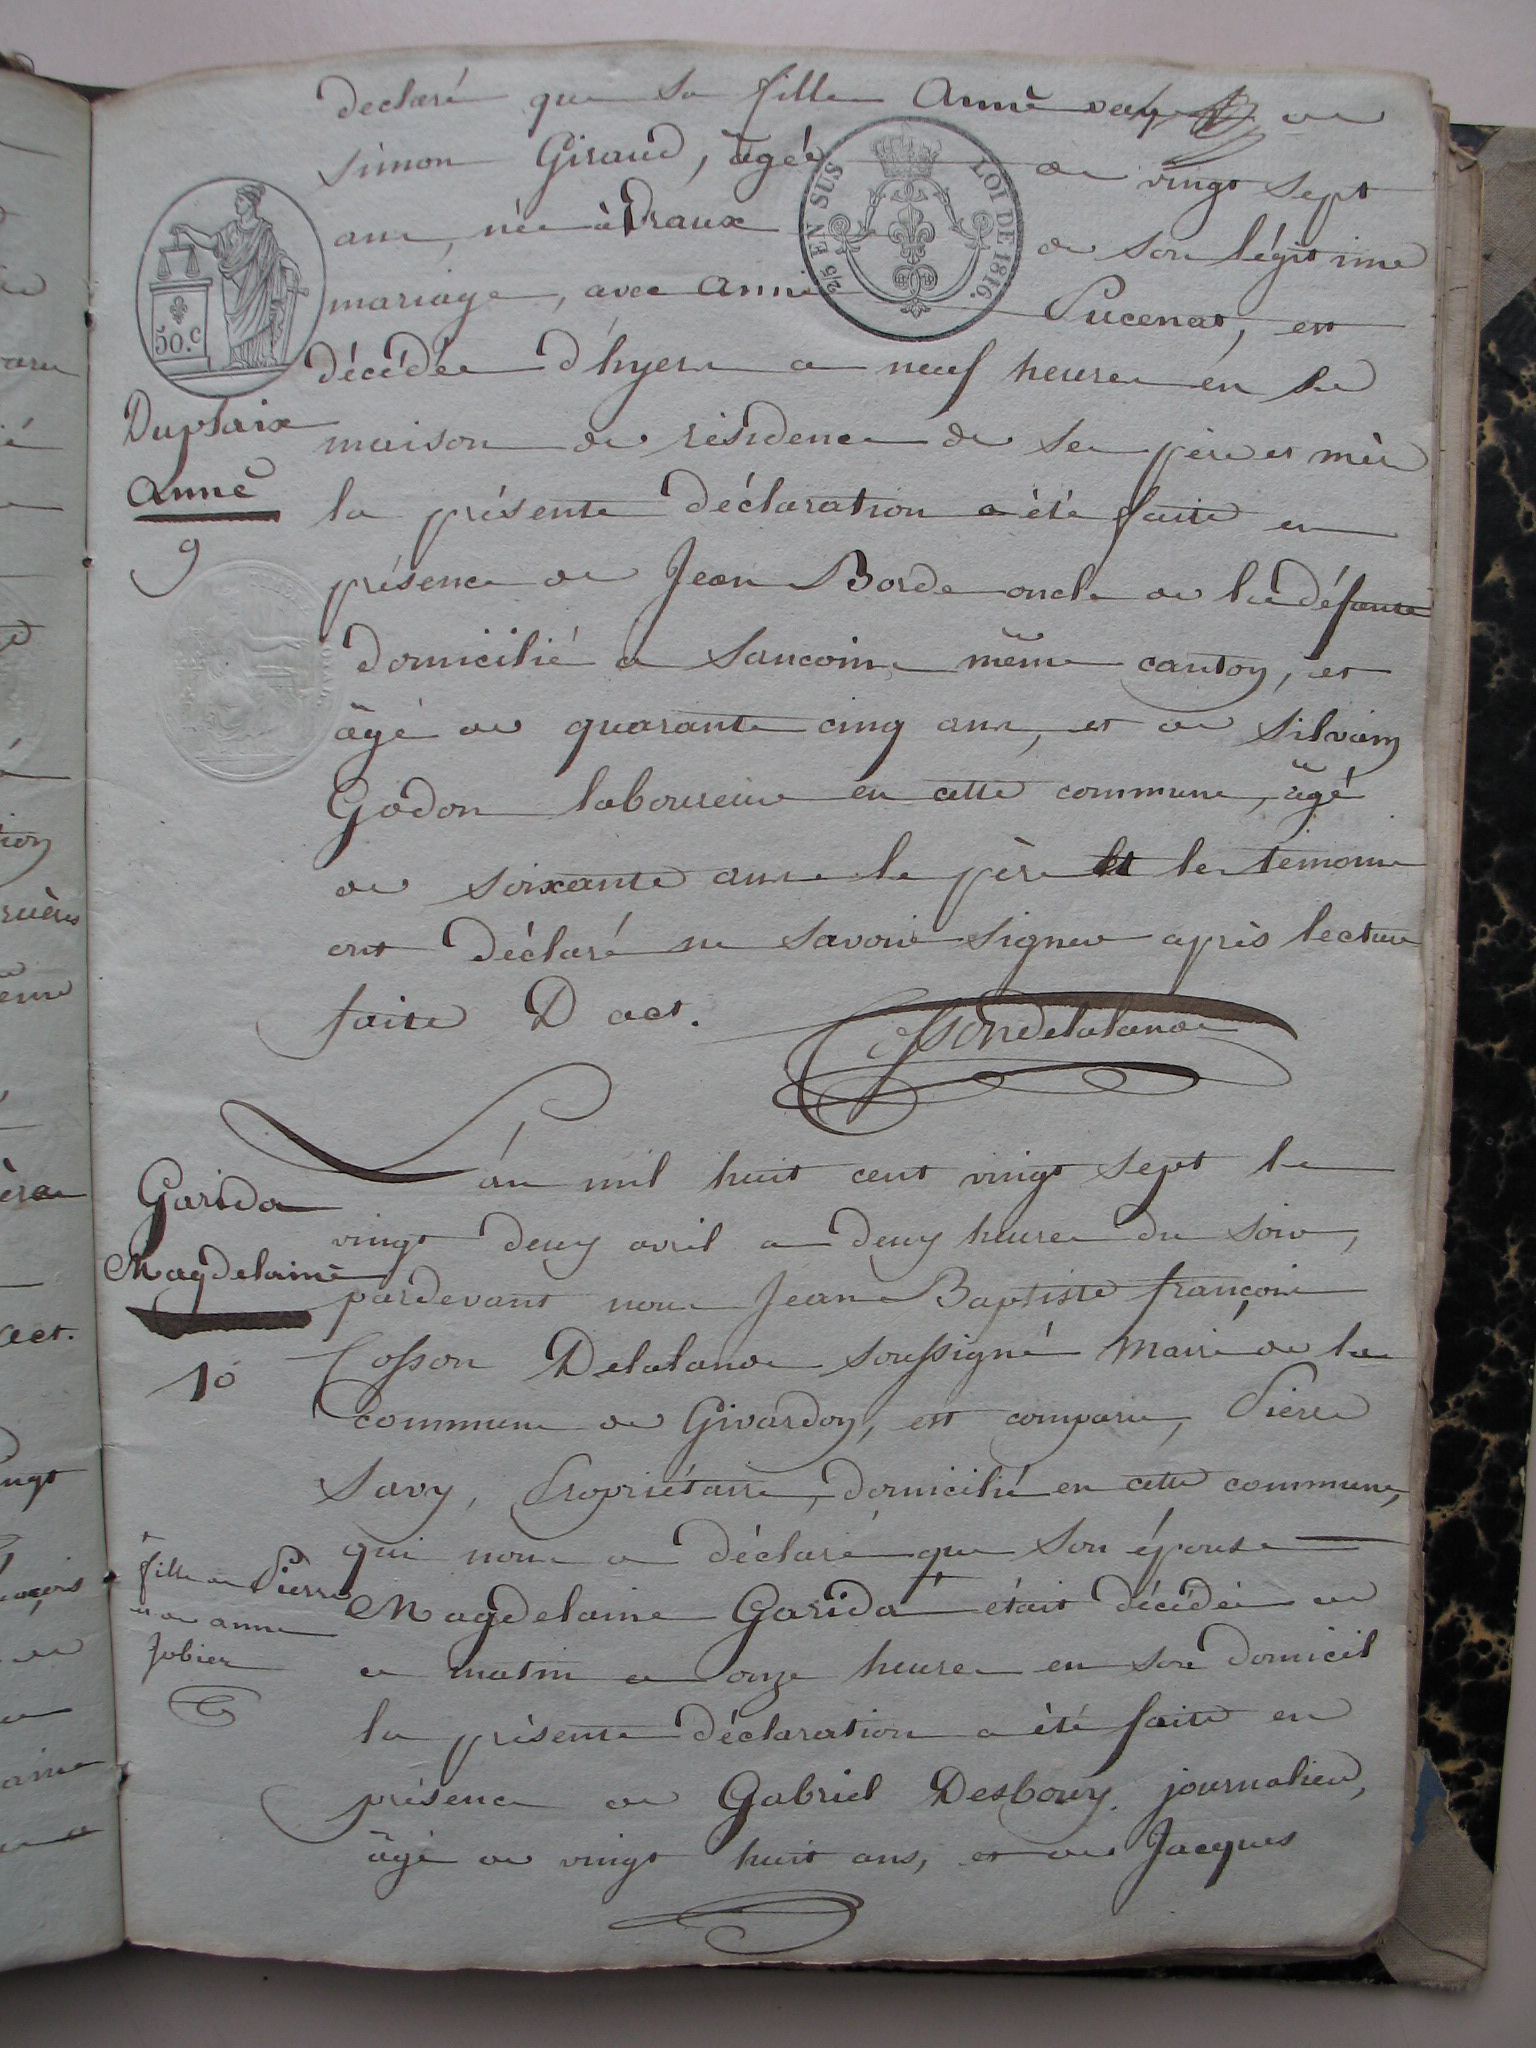 declaré que sa fille Anne de
simon Giraud, âgée de vingt sept
ans, née à Draux de son légitime
mariage, avec Anne Pucenat, est
décédée d'hyers a neuf heures en la
maison de résidence de ses père et mère
la présente déclaration a été faite en
présence de Jean Borde oncle de la défunte
domicilié a Sancoins même canton, et
âgé de quarante cinq ans, et de silvain
Godon laboureur en cette commune, âgé
de soixante ans le père et les temoins
ont déclaré ne savoir signer après lecture
faite D'act.
Cossondelalande
LOI DE 1816.
2/5 EN SUS
50.c
Duplaix
Anne
9
Garida
Magdelaine
10
L'an mil huit cent vingt sept le
vingt deux avril a deux heures du soir,
pardevant nous Jean Baptiste françois
Cosson Delalande soussigné Maire de la
commune de Givardon, est comparu, Pierre
Savy, Propriétaire, domicilié en cette commune,
qui nous a déclaré que son épouse
Magdelaine Garida + était décédée de
ce matin a onze heures en son domicil
la présente déclaration a été faite en
présence de Gabriel Desbouy, journalier,
âgé de vingt huit ans, et de Jacques
+
fille de Pierre
et de anne
Jobier